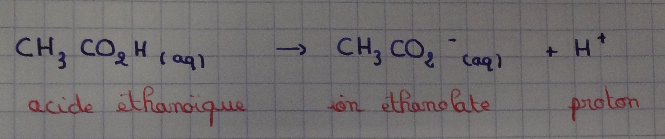 CH₃CO₂H (aq) → CH₃CO₂⁻ (aq) + H⁺
acide éthanoïque ion éthanolate proton